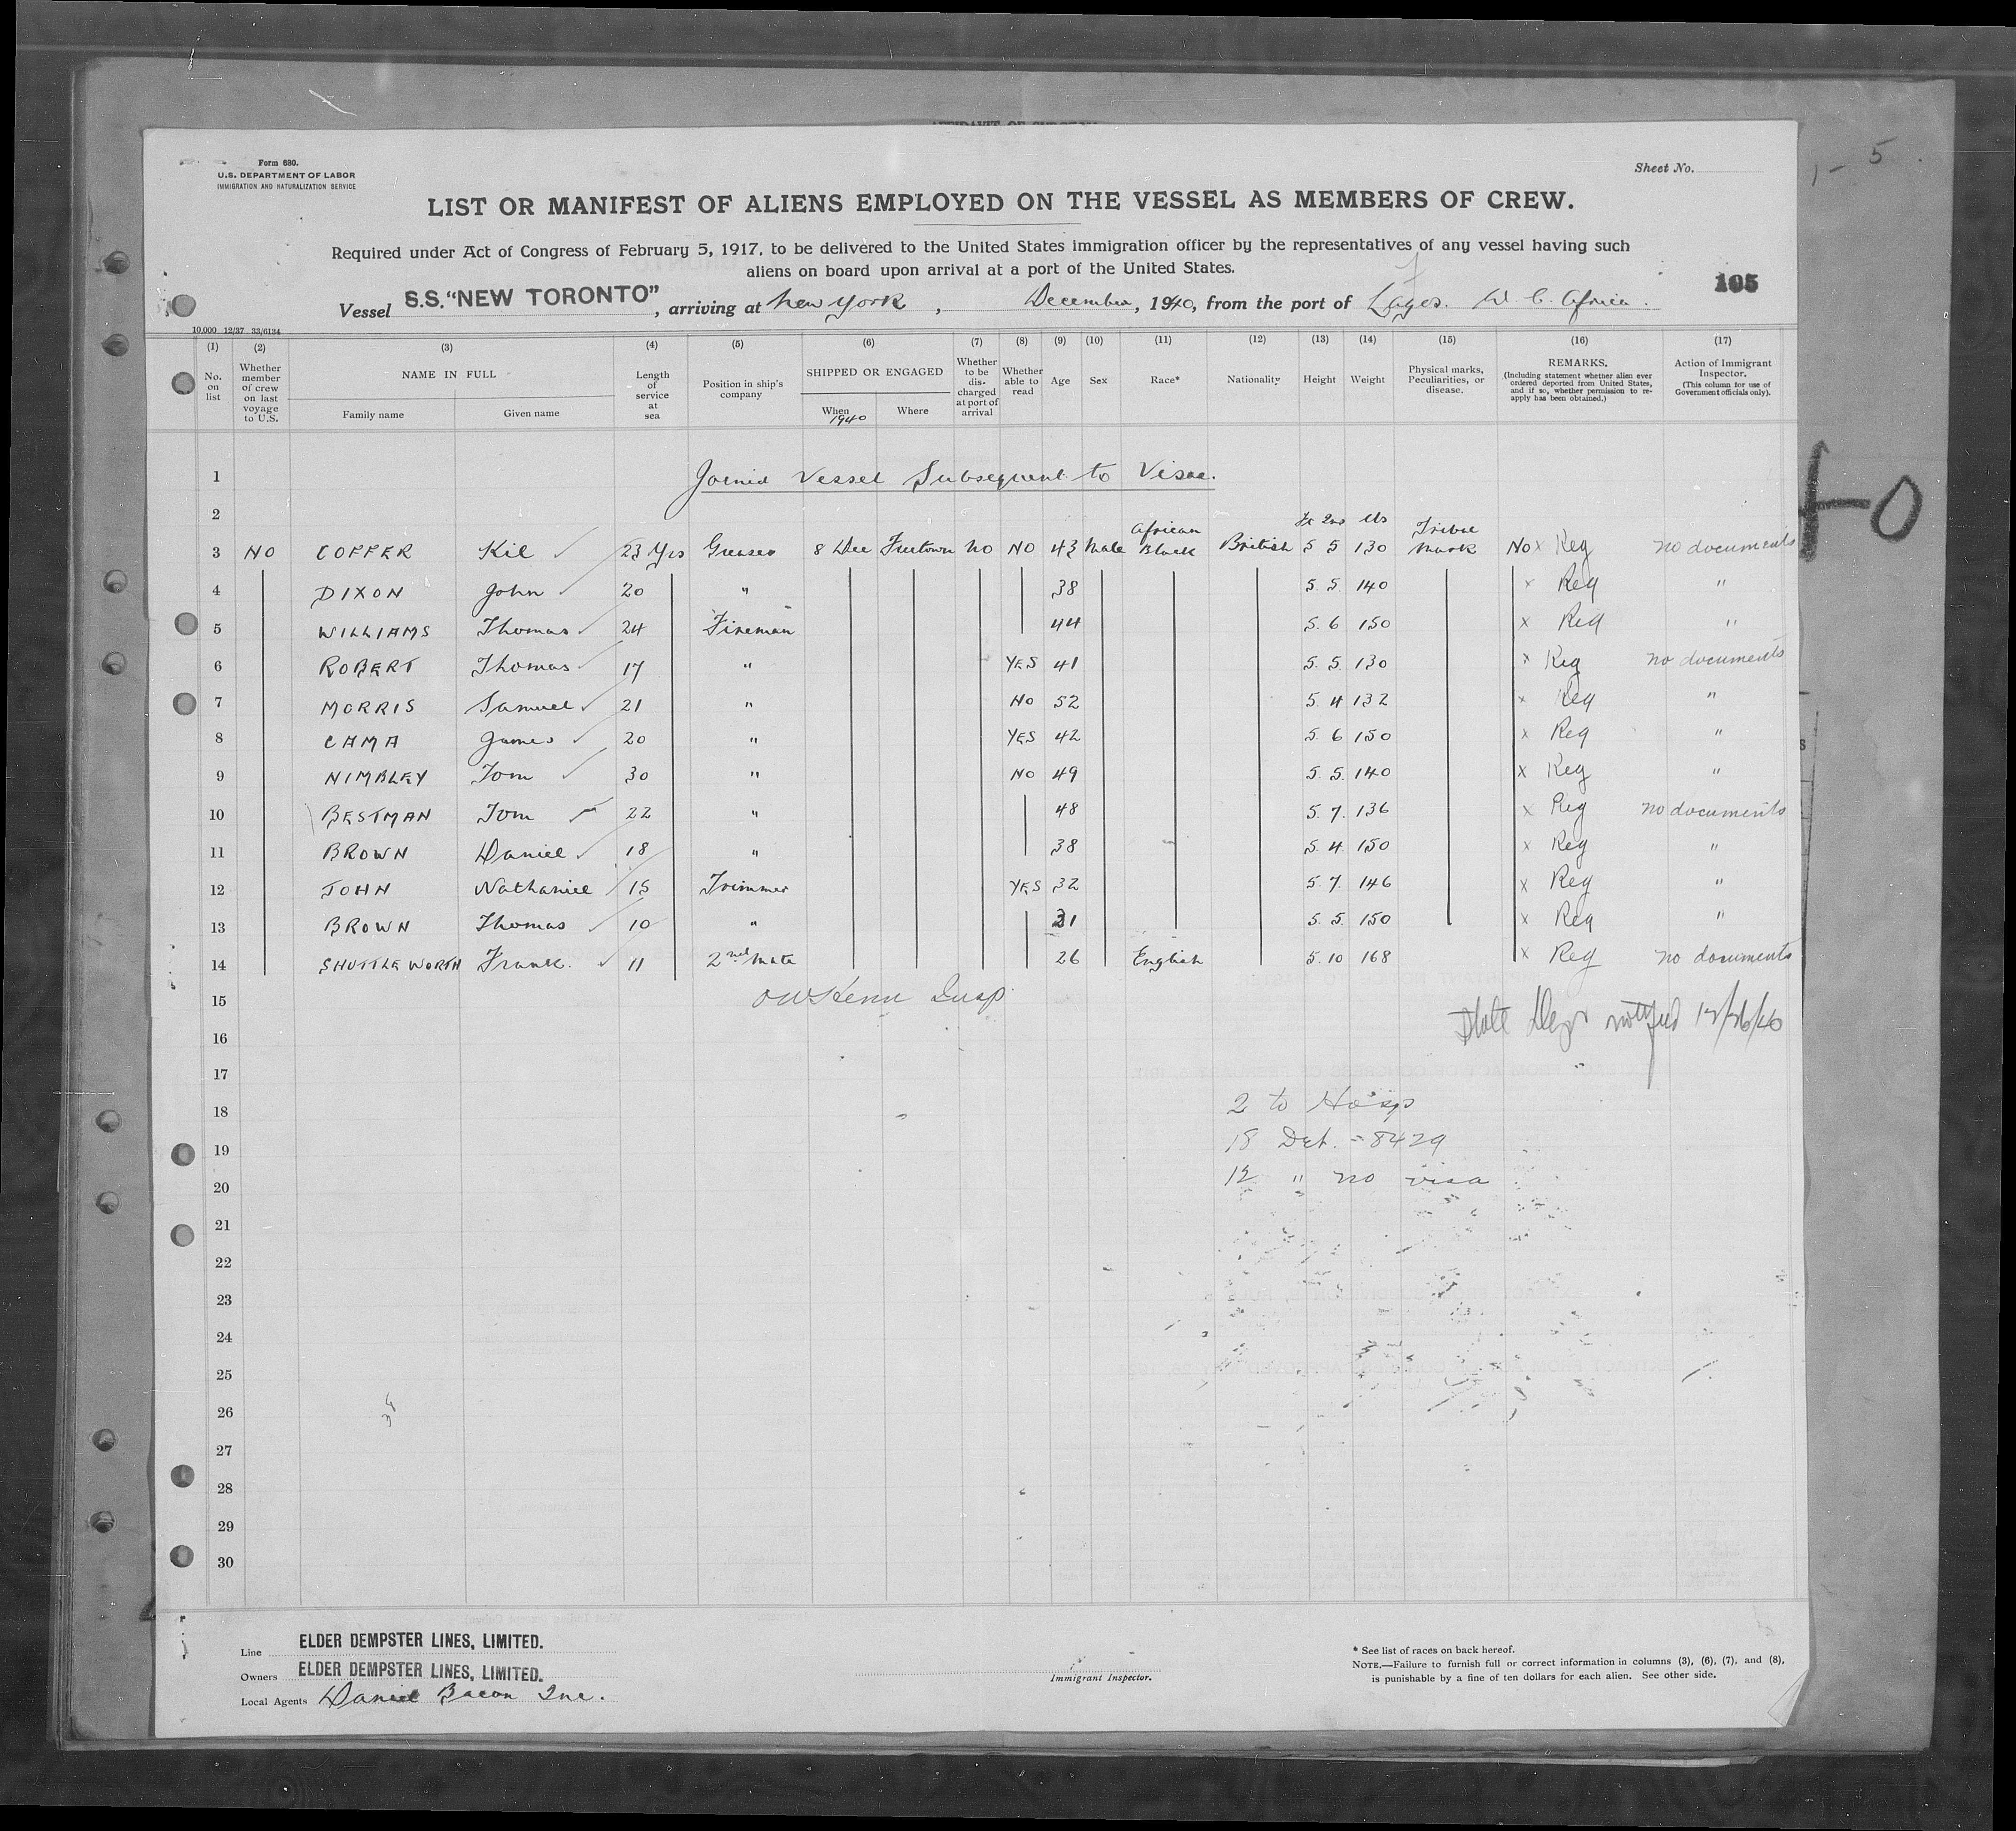 Form 680.
U.S. DEPARTMENT OF LABOR
IMMIGRATION AND NATURALIZATION SERVICE
Sheet No.
1- 5
LIST OR MANIFEST OF ALIENS EMPLOYED ON THE VESSEL AS MEMBERS OF CREW.
Required under Act of Congress of February 5, 1917, to be delivered to the United States immigration officer by the representatives of any vessel having such
aliens on board upon arrival at a port of the United States.
105
Vessel S.S. "NEW TORONTO", arriving at New York, December, 1940, from the port of Lagos. W. C. Africa.
10,000 12/37 33/6134
(1) (2) (3) (4) (5) (6) (7) (8) (9) (10) (11) (12) (13) (14) (15) (16) (17)
No. on list
Whether member of crew on last voyage to U.S.
NAME IN FULL
Family name
Given name
Length of service at sea
Position in ship's company
SHIPPED OR ENGAGED
When 1940
Where
Whether to be discharged at port of arrival
Whether able to read
Age
Sex
Race*
Nationality
Height
Weight
Physical marks, Peculiarities, or disease.
REMARKS.
(Including statement whether alien ever ordered deported from United States, and if so, whether permission to reapply has been obtained.)
Action of Immigrant Inspector.
(This column for use of Government officials only).
40
1 Joined Vessel Subsequent to Visae.
2
3 NO COFFER Kil 23 Yrs Greaser 8 Dec Freetown NO NO 43 Male African Black British 5 5 130 Tribal Mark No x Reg no documents
4 DIXON John 20 " 38 5. 5. 140 x Reg "
5 WILLIAMS Thomas 24 Fireman 44 5. 6 150 x Reg "
6 ROBERT Thomas 17 " YES 41 5. 5. 130 x Reg no documents
7 MORRIS Samuel 21 " NO 52 5. 4 132 x Reg "
8 CAMA James 20 " YES 42 5. 6 150 x Reg "
9 NIMBLEY Tom 30 " NO 49 5. 5. 140 x Reg "
10 BESTMAN Tom 22 " 48 5. 7. 136 x Reg no documents
11 BROWN Daniel 18 " 38 5. 4. 150 x Reg "
12 JOHN Nathaniel 15 Trimmer YES 32 5. 7. 146 x Reg "
13 BROWN Thomas 10 " 31 5. 5. 150 x Reg "
14 SHUTTLEWORTH Frank. 11 2nd Mate 26 English 5. 10 168 x Reg no documents
15 Insp.
State Dept notified 12/26/40
16
17
18 2 to Hosp
19 18 Det. = 8429
20 12 " no visa
21
22
23
24
25
26
27
28
29
30
Line ELDER DEMPSTER LINES, LIMITED.
Owners ELDER DEMPSTER LINES, LIMITED.
Local Agents Daniel Bacon Inc.
Immigrant Inspector.
* See list of races on back hereof.
NOTE.—Failure to furnish full or correct information in columns (3), (6), (7), and (8),
is punishable by a fine of ten dollars for each alien. See other side.